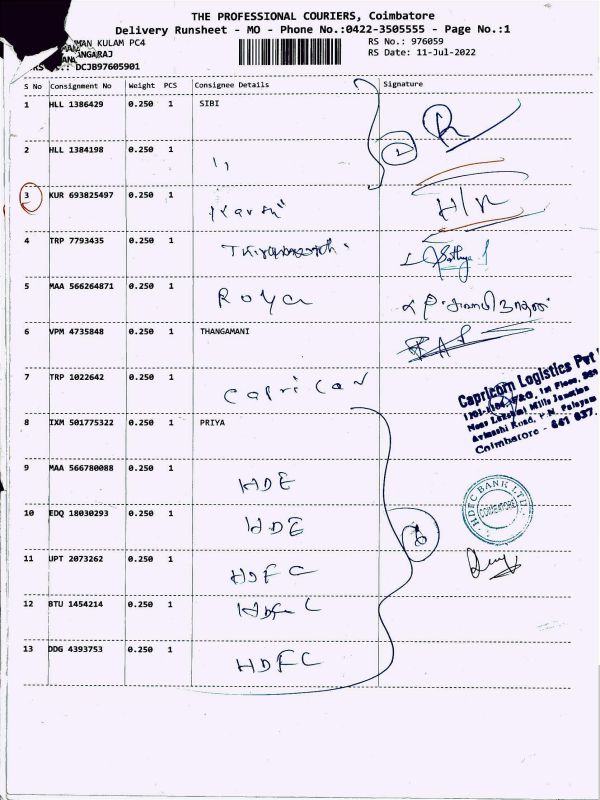 THE PROFESSIONAL COURIERS, Coimbatore
Delivery Runsheet - MO - Phone No.:0422-3505555 - Page No.:1
MAN KULAM PC4
RS No.: 976059
ANGARAJ
RS Date: 11-Jul-2022
DCJB97605901
S No Consignment No Weight PCS Consignee Details Signature
1 HLL 1386429 0.250 1 SIBI
2 HLL 1384198 0.250 1 ''
3 KUR 693825497 0.250 1
H/R
4 TRP 7793435 0.250 1
5 MAA 566264871 0.250 1 Roya
6 VPM 4735848 0.250 1 THANGAMANI
7 TRP 1022642 0.250 1 Capricon
Capricorn Logistics Pvt
1st Floor,
Near Lakshmi Mills Junction
Avinashi Road, P.N. Palayam
Coimbatore - 641 037.
8 IXM 501775322 0.250 1 PRIYA
9 MAA 566780088 0.250 1 HDF
10 EDQ 18030293 0.250 1 HDF
HDFC BANK LTD.
COIMBATORE
6
11 UPT 2073262 0.250 1 HDFC
12 BTU 1454214 0.250 1 HDFC
13 DDG 4393753 0.250 1 HDFC